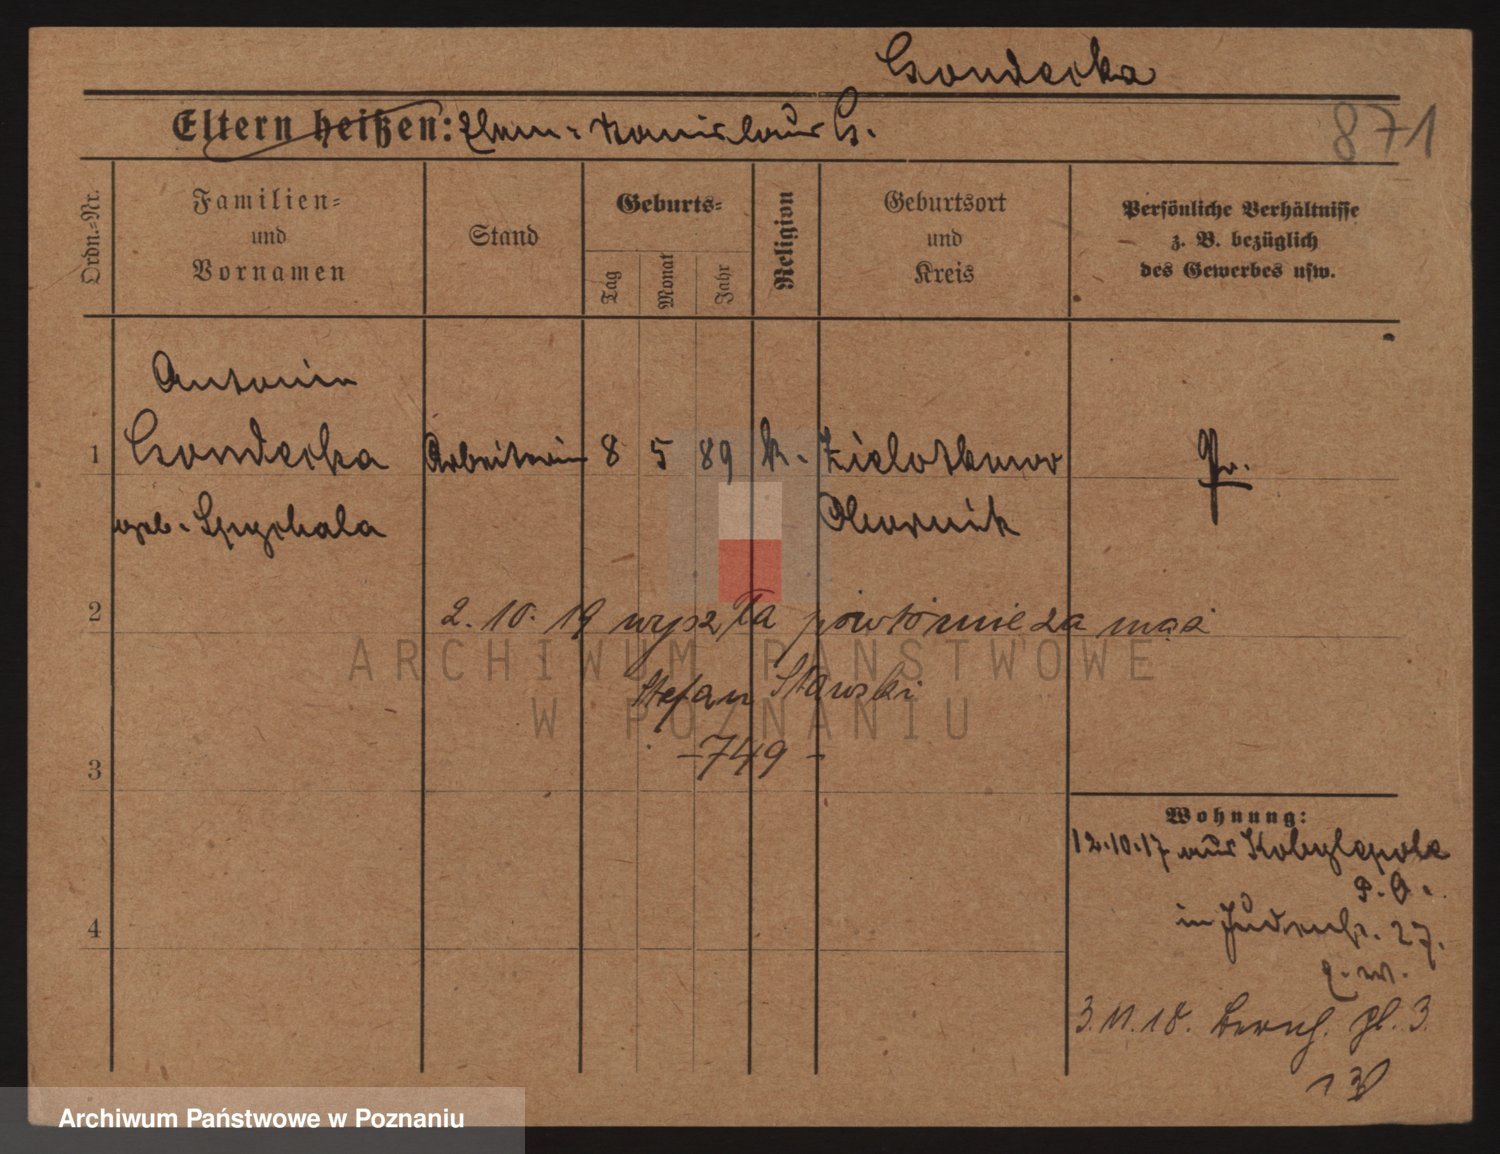 871
Eltern heißen:
Ordn.-Nr.
Familien-
und
Vornamen
Stand
Geburts-
Tag
Monat
Jahr
Religion
Geburtsort
und
Kreis
Persönliche Verhältnisse
z. B. bezüglich
des Gewerbes usw.
1
Arbeiterin
8
5
89
k.
Pr.
geb. Spychala
Obornik
2
2. 10. 19 wyszła powtórnie za mąż
Stefan Stawski
- 749 -
3
Wohnung:
12.10.17 aus Kobylepole
P. O.
in Judenstr. 27.
4
3. 11. 18. Bernh. pl. 3
ARCHIWUM PAŃSTWOWE
W POZNANIU
Archiwum Państwowe w Poznaniu